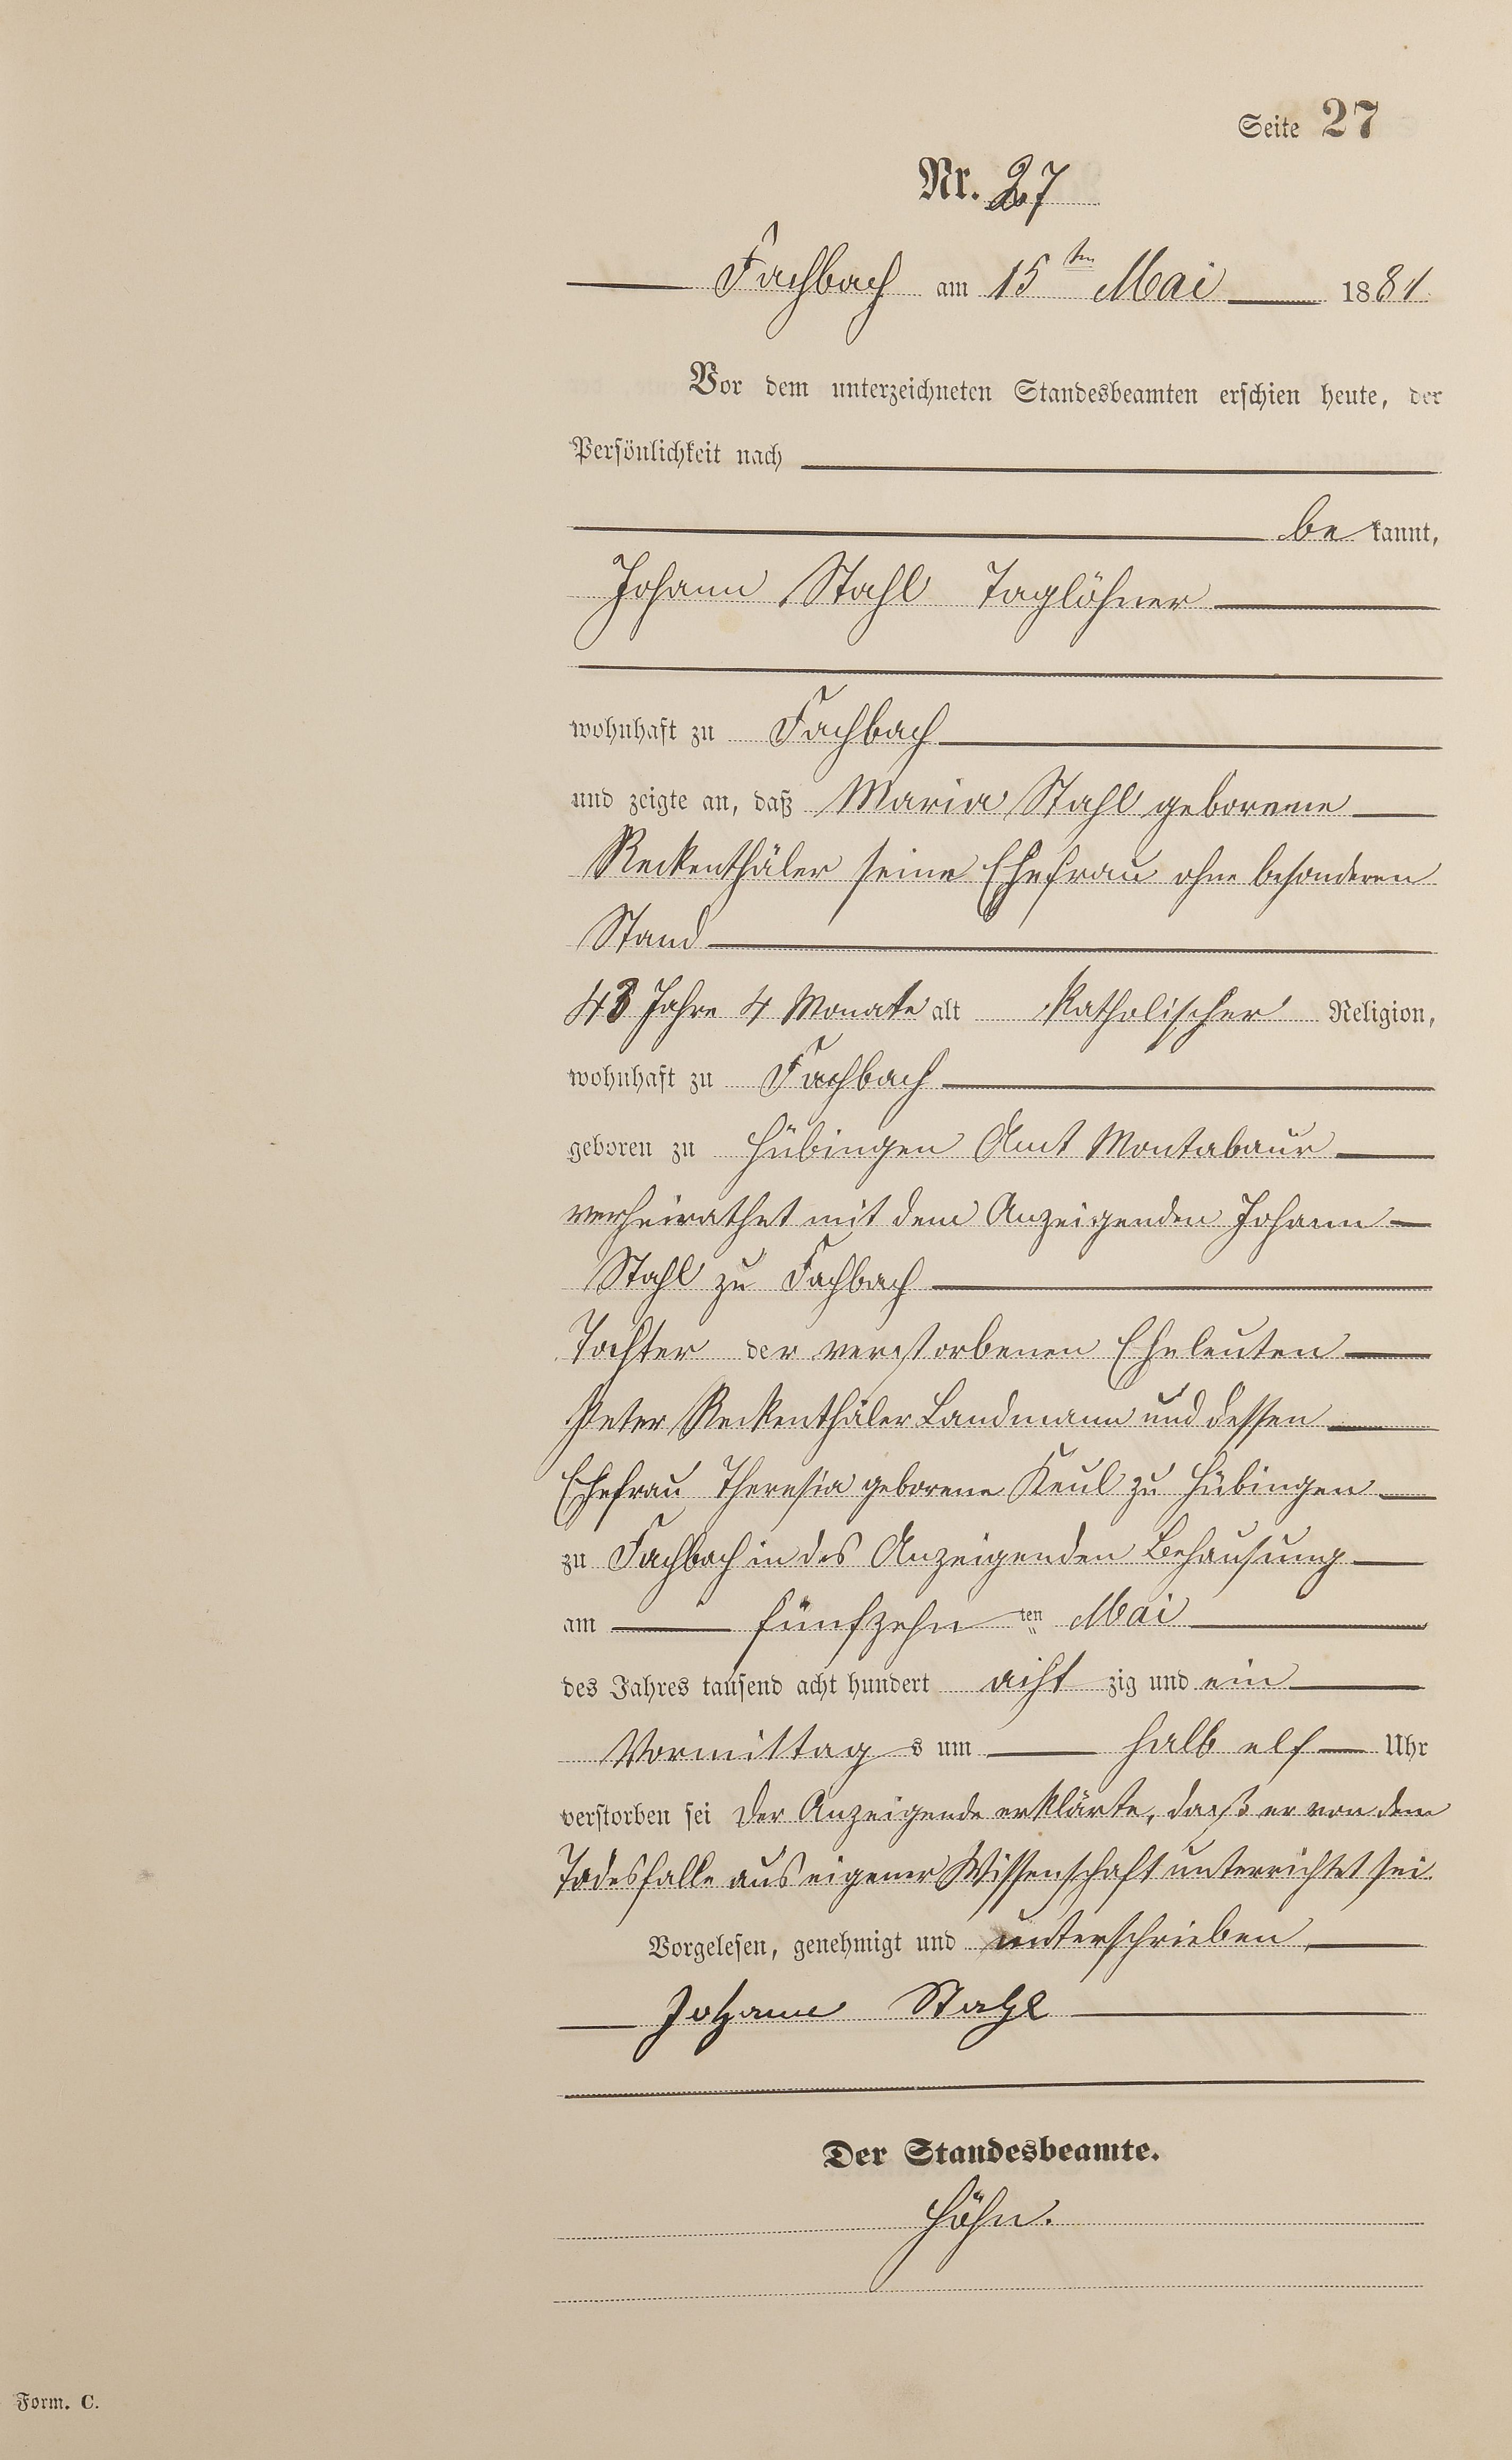 Seite 27
Nr. 27
Fachbach am 15ten Mai 1881
Vor dem unterzeichneten Standesbeamten erschien heute, der
Persönlichkeit nach
bekannt,
Johann Stahl Taglöhner
wohnhaft zu Fachbach
und zeigte an, daß Maria Stahl geborene
Reckenthäler seine Ehefrau ohne besonderen
Stand
43 Jahre 4 Monate alt Katholischer Religion,
wohnhaft zu Fachbach
geboren zu Hübingen Amt Montabaur
verheirathet mit dem Anzeigenden Johann
Stahl zu Fachbach
Tochter der verstorbenen Eheleuten
Peter Reckenthäler Landmann und dessen
Ehefrau Theresia geborene Keul zu Hübingen
zu Fachbach in des Anzeigenden Behausung
am fünfzehnten Mai
des Jahres tausend acht hundert achtzig und ein
Vormittags um halb elf Uhr
verstorben sei Der Anzeigende erklärte, daß er von dem
Todesfalle aus eigener Wissenschaft unterrichtet sei.
Vorgelesen, genehmigt und unterschrieben
Johann Stahl
Der Standesbeamte.
Höhn.
Form. C.